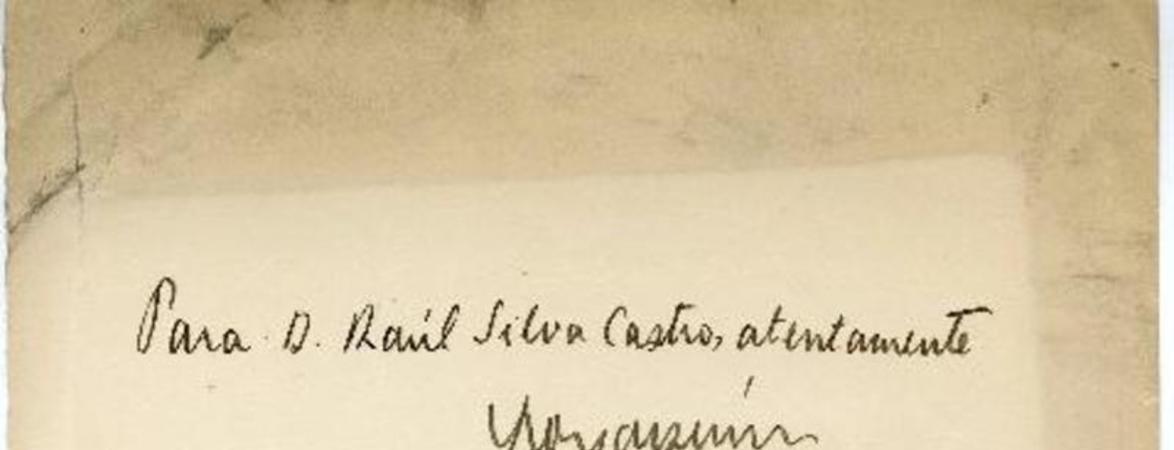 Para D. Raúl Silva Castro, atentamente